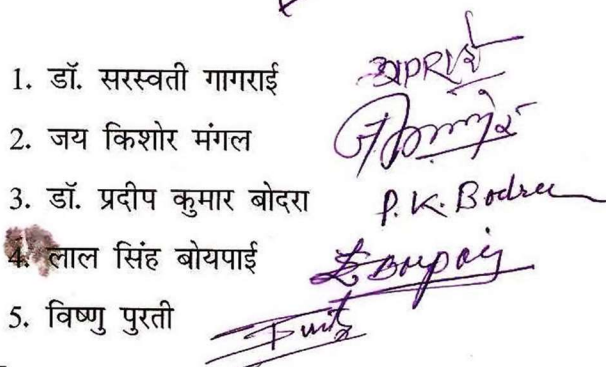 1. डॉ. सरस्वती गागराई
2. जय किशोर मंगल
3. डॉ. प्रदीप कुमार बोदरा P. K. Bodra
4. लाल सिंह बोयपाई
5. विष्णु पुरती